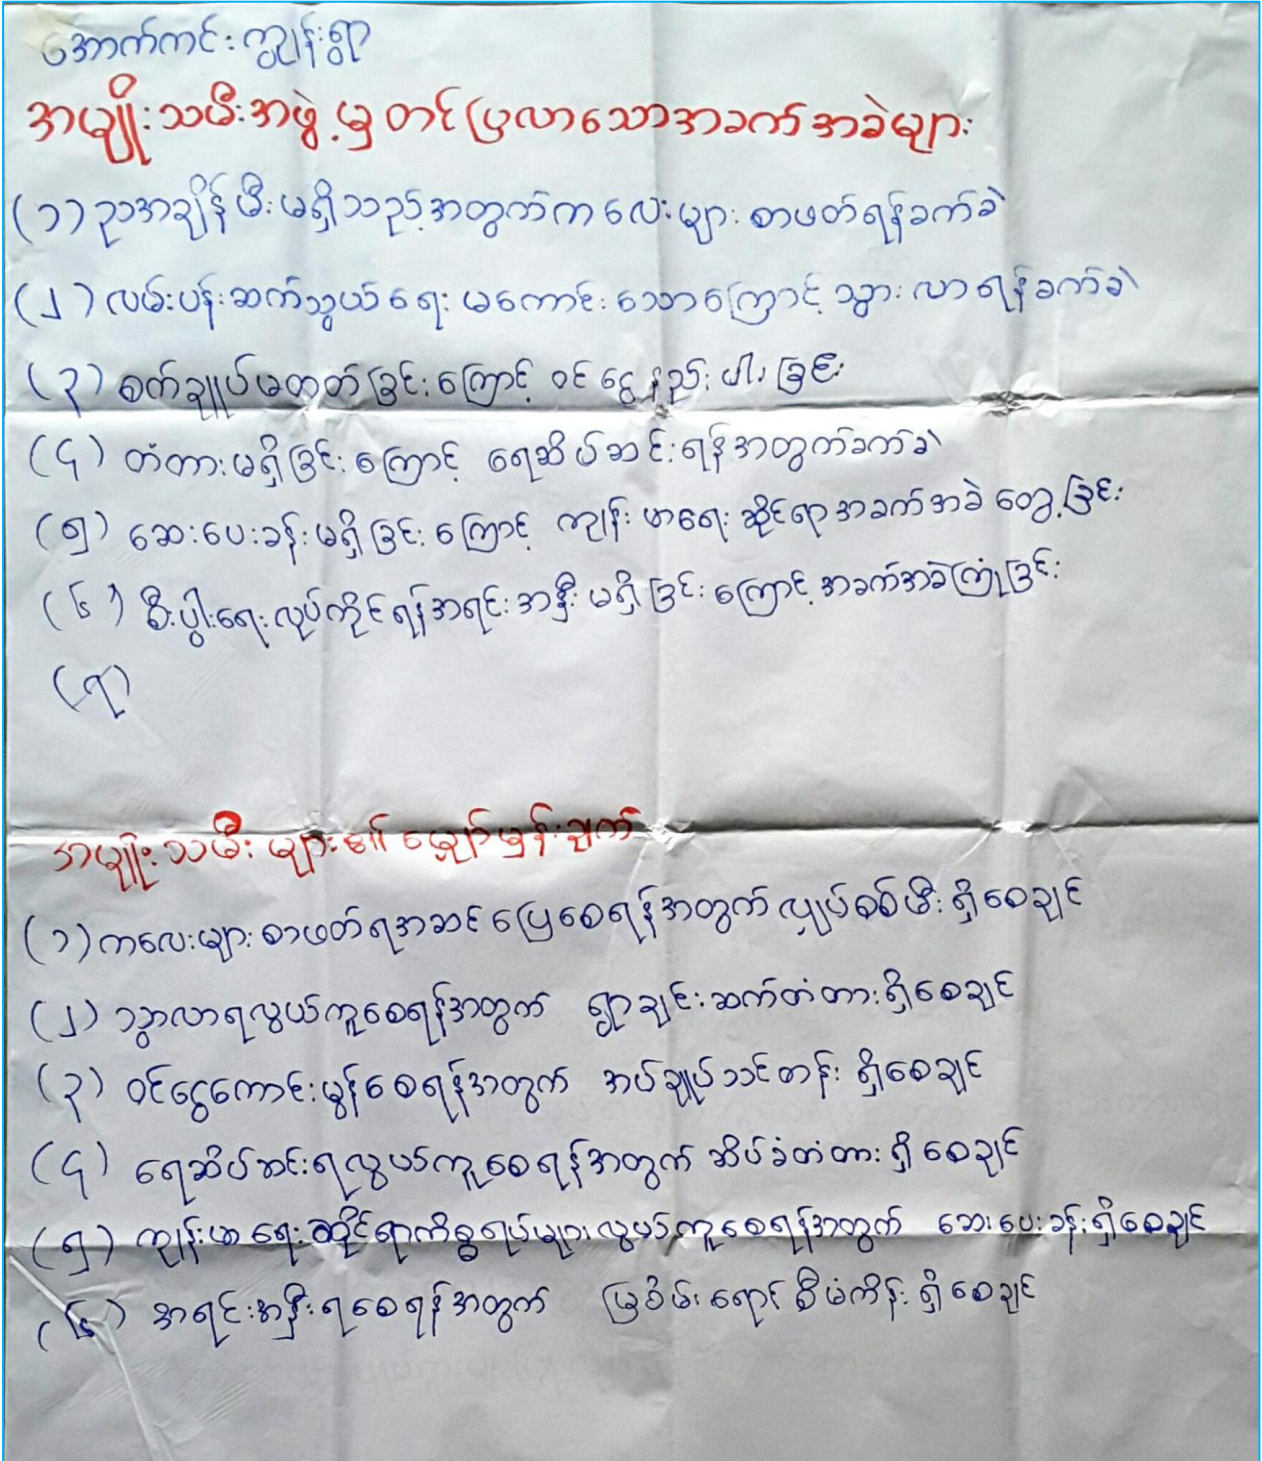 အောက်ကင်းကျွန်းရွာ
အမျိုးသမီးအဖွဲ့မှ တင်ပြလာသောအခက်အခဲများ
(၁) ညအချိန်မီးမရှိသည့်အတွက်ကလေးများ စာဖတ်ရန်ခက်ခဲ
(၂) လမ်းပန်းဆက်သွယ်ရေး မကောင်းသောကြောင့် သွားလာရန်ခက်ခဲ
(၃) စက်ချုပ်မတတ်ခြင်းကြောင့် ဝင်ငွေနည်းပါးခြင်း
(၄) တံတားမရှိခြင်းကြောင့် ရေဆိပ်ဆင်းရန်အတွက်ခက်ခဲ
(၅) ဆေးပေးခန်းမရှိခြင်းကြောင့် ကျန်းမာရေးဆိုင်ရာအခက်အခဲတွေ့ခြင်း
(၆) စီးပွါးရေးလုပ်ကိုင်ရန်အရင်းအနှီးမရှိခြင်းကြောင့်အခက်အခဲကြုံခြင်း
(၇)
အမျိုးသမီးများ၏ မျှော်မှန်းချက်
(၁) ကလေးများ စာဖတ်ရအဆင်ပြေစေရန်အတွက် လျှပ်စစ်မီးရှိစေချင်
(၂) သွာလာရလွယ်ကူစေရန်အတွက် ရွာချင်းဆက်တံတားရှိစေချင်
(၃) ဝင်ငွေကောင်းမွန်စေရန်အတွက် အပ်ချုပ်သင်တန်းရှိစေချင်
(၄) ရေဆိပ်ဆင်းရလွယ်ကူစေရန်အတွက် ဆိပ်ခံတံတားရှိစေချင်
(၅) ကျန်းမာရေးဆိုင်ရာကိစ္စရပ်များလွယ်ကူစေရန်အတွက် ဆေးပေးခန်းရှိစေချင်
(၆) အရင်းအနှီးရစေရန်အတွက် မြစိမ်းရောင်စီမံကိန်းရှိစေချင်